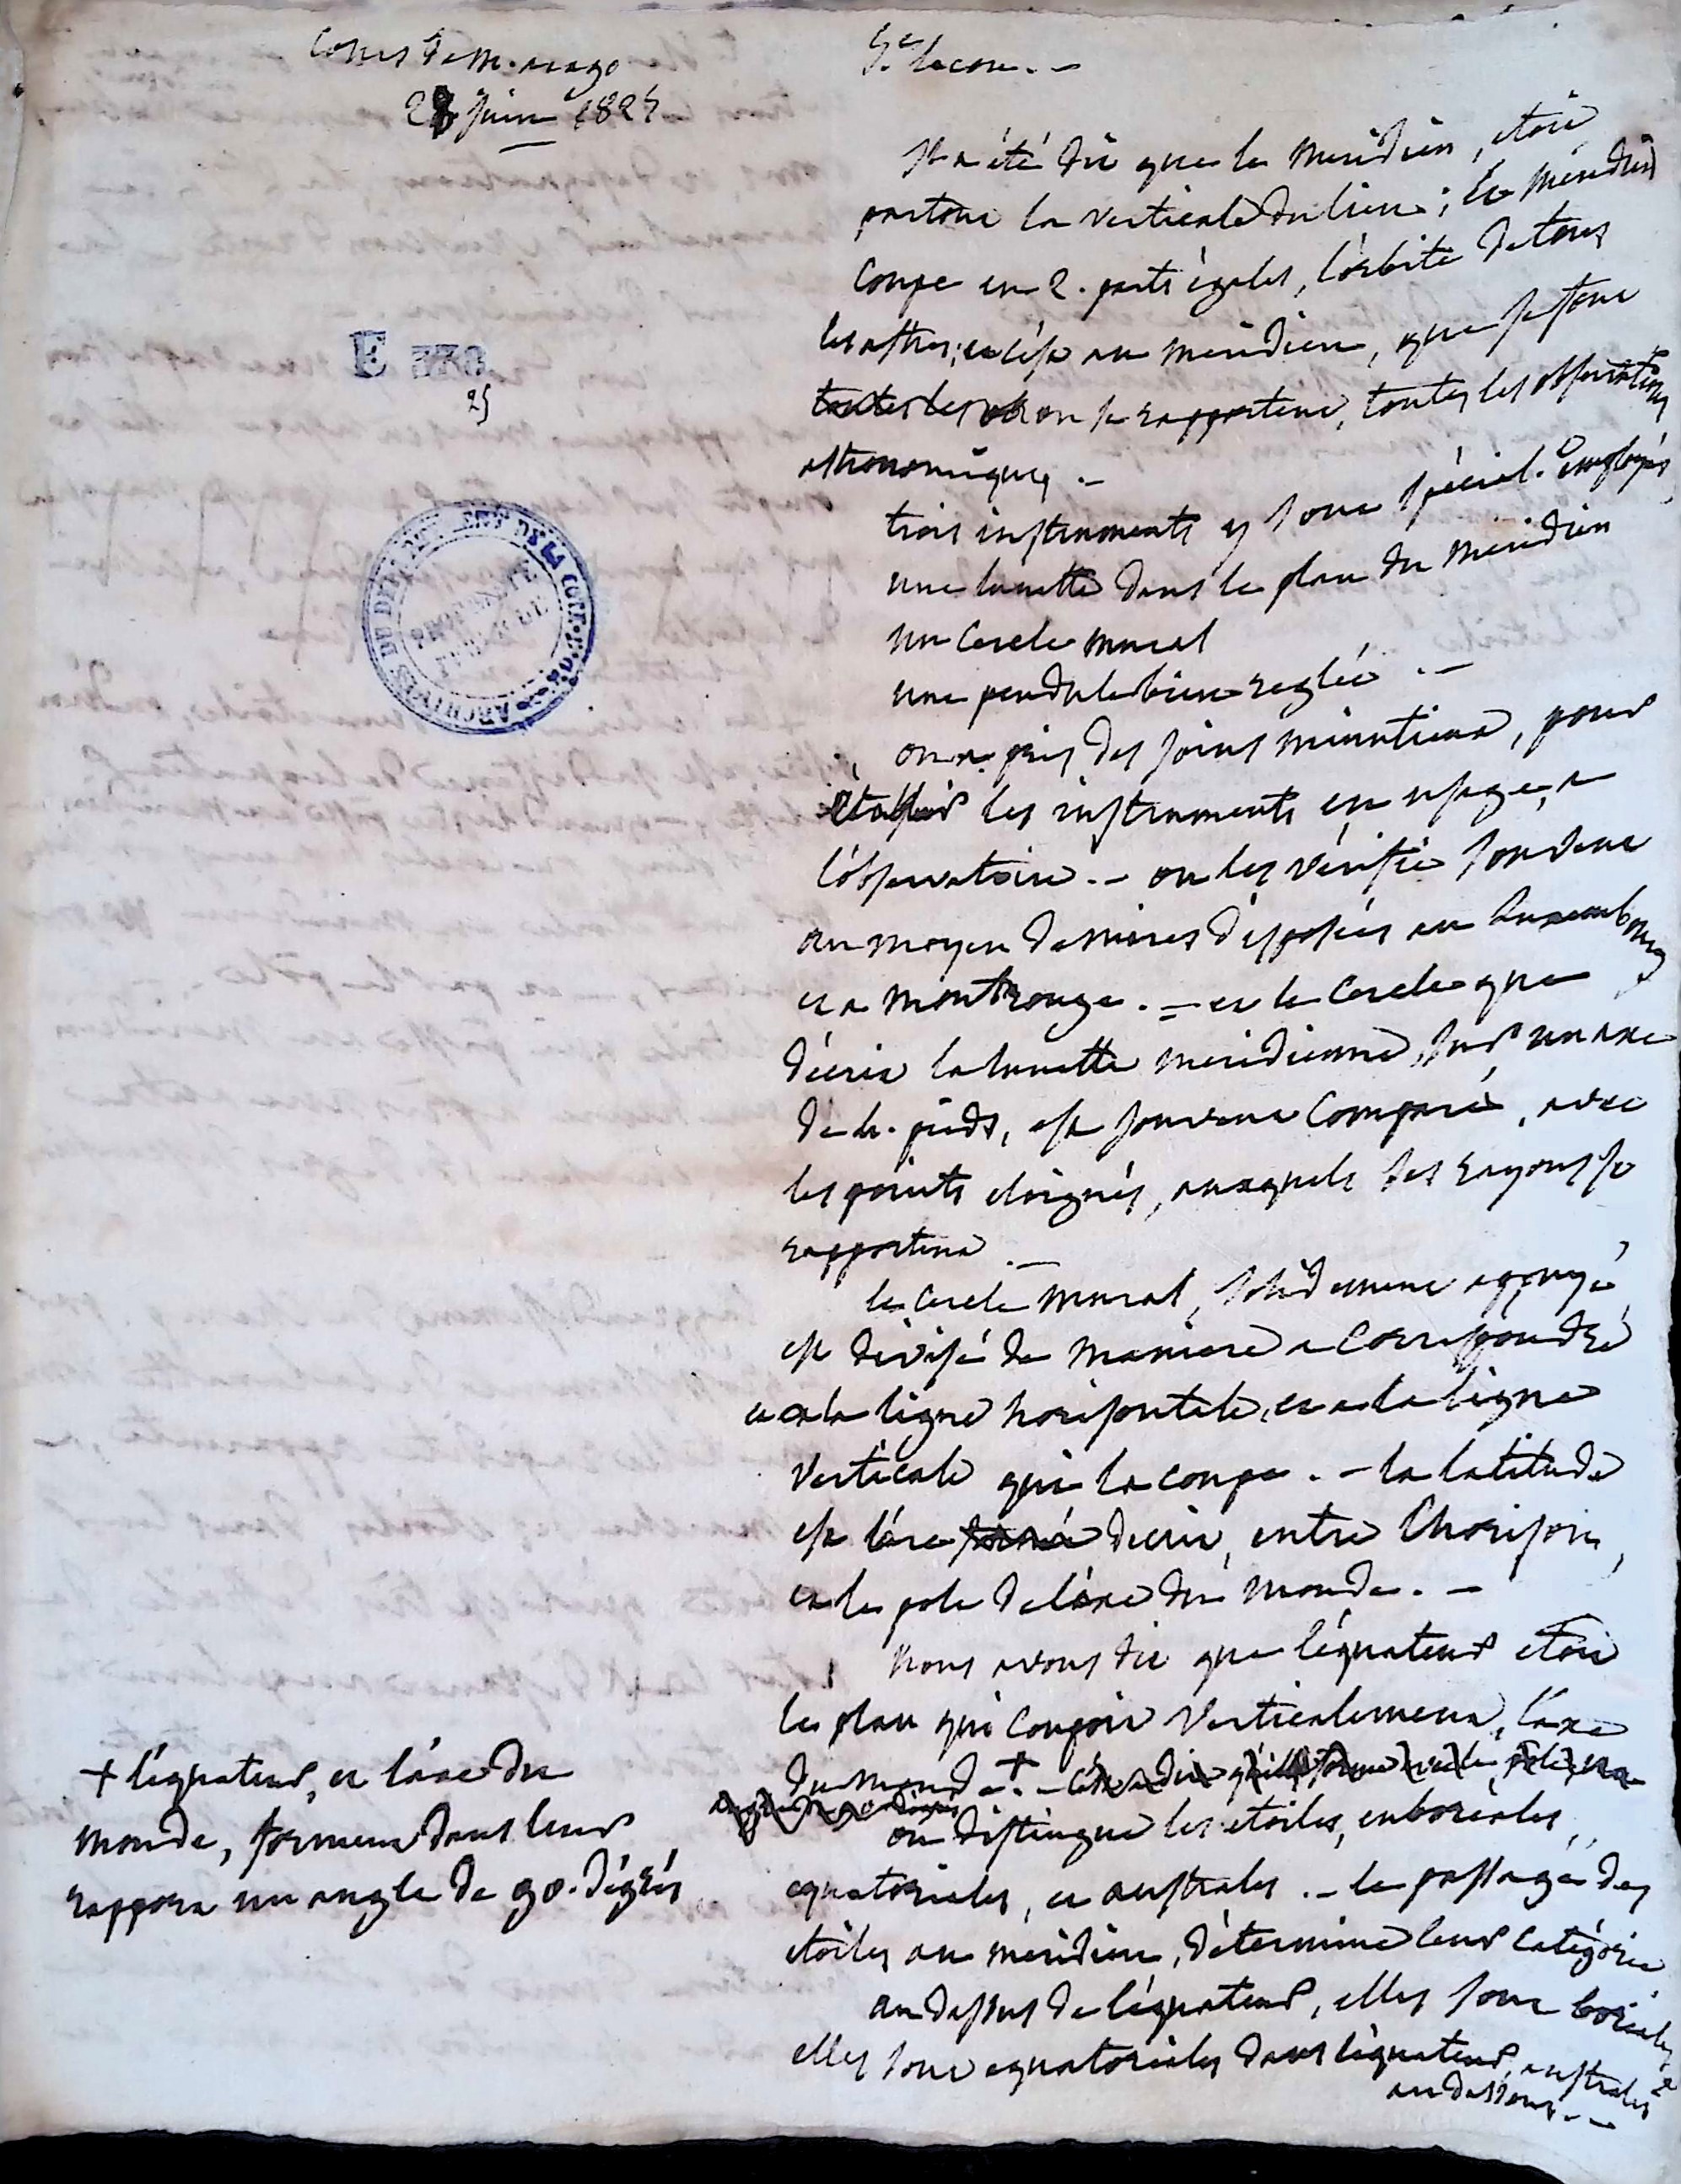 Cours de M. arago
28 juin 1825
5e lecon. –
E 378
25
ARCHIVES DU DEPARTEMENT DE LA COTE-D'OR
PROPRIETE PUBLIQUE
Il a été dit que le meridien, etoit
partout la verticale du lieu ; Le meridien
coupe en 2. parts égales, l'orbite de tous
les astres; et c'est au meridien, que se font
toutes les ou se rapportent, toutes les observations
astronomiques. –
trois instruments y sont spécial.t employés
une lunette dans le plan du meridien
un cercle mural
une pendule bien reglée. –
on a pris des soins minutieux, pour
établir les instruments en usage, a
l'observatoire. – on les vérifie souvent
au moyen de mires disposées au Luxembourg
et a Montrouge. – et le cercle que
décrit la lunette meridienne, sur un axe
de 4. pieds, est souvent comparé, avec
les points eloignés, auxquels ses rayons se
rapportent. –
le cercle mural, solidement appuyé,
est divisé de maniere a correspondre
et a la ligne horisontale, et a la ligne
verticale qui la coupe. – la latitude
est l'arc formé decrit, entre l'horison,
et le pole de l'axe du monde. –
nous avons dit que l'équateur etoit
le plan qui coupoit verticalement, l'axe
du monde +. – c'est a dire qu'il forme avec le pole, un
angle de 90 degrés
on distingue les etoiles, en boreales,
equatoriales, et australes. – le passage des
etoiles au meridien, détermine leur catégorie
au dessus de l'équateur, elles sont boreales,
elles sont equatoriales dans l'équateur, australes
au dessous. –
+ l'équateur, et l'axe du
monde, forment dans leur
rapport un angle de 90. dégrés